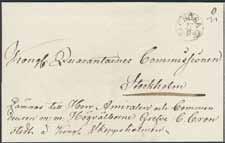 Kongl. Quarantaines Commissionen
Stockholm
Lämnas till Herr Amiralen och Commen
deuren m. m. Högvälborne Grefve C. Cron
stedt å Kongl. Skeppsholmen